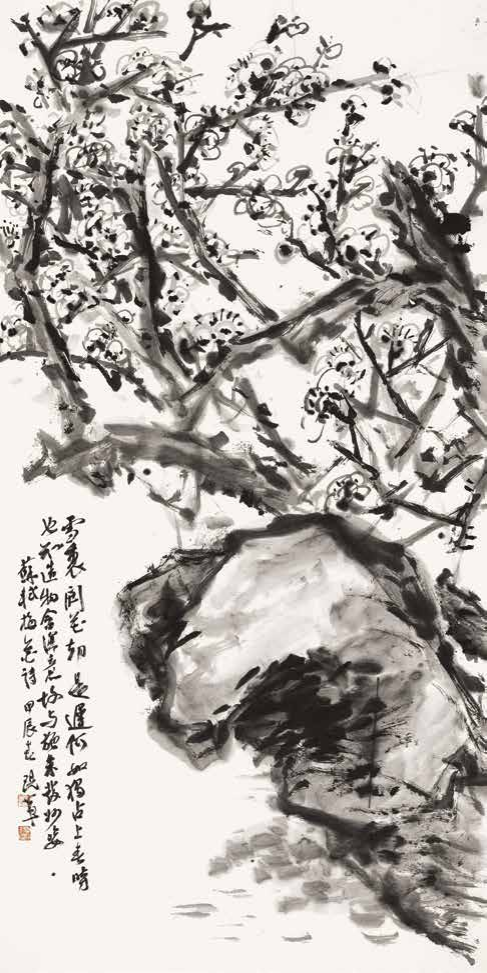 雪裏開花却是遲何如獨占上春時
也知造物含深意故与施朱發妙姿
蘇軾梅花詩 甲辰春